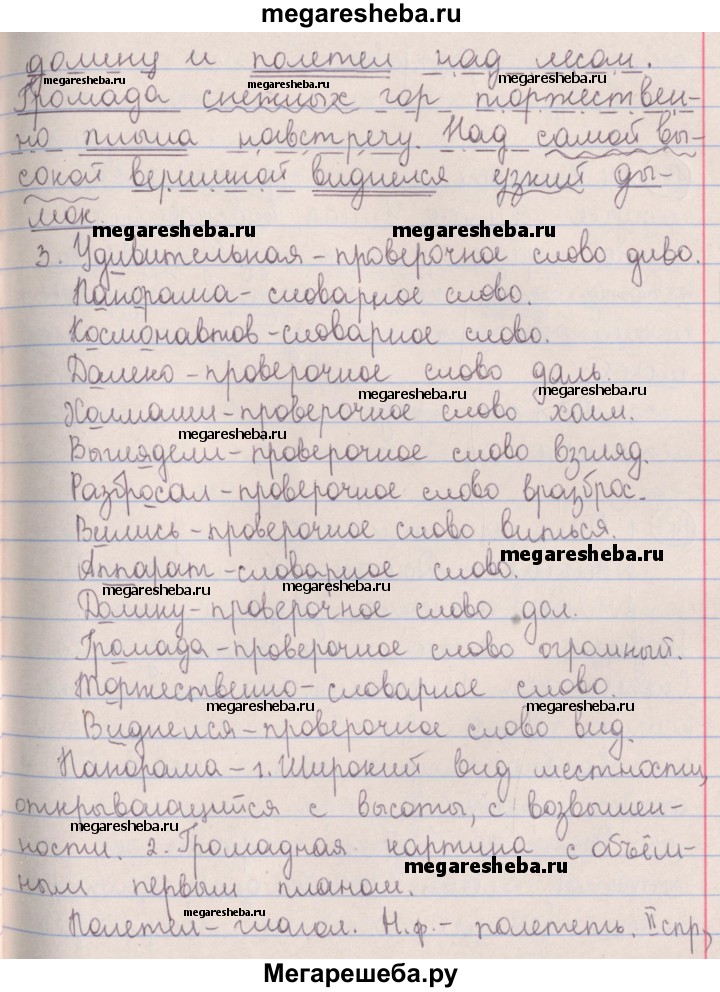 megaresheba.ru
долину и полетел над лесом.
megaresheba.ru megaresheba.ru megaresheba.ru
Громада снежных гор торжествен-
но плыла навстречу. Над самой вы-
сокой вершиной виднелся узкий ды-
мок.
megaresheba.ru megaresheba.ru
3. Удивительная - проверочное слово диво.
Панорама - словарное слово.
Космонавтов - словарное слово.
Далеко - проверочное слово даль.
megaresheba.ru megaresheba.ru
Холмами - проверочное слово холм.
megaresheba.ru
Выглядели - проверочное слово взгляд.
Разбросал - проверочное слово вразброс.
Вились - проверочное слово виться.
megaresheba.ru
Аппарат - словарное слово.
megaresheba.ru megaresheba.ru
Долину - проверочное слово дол.
Громада - проверочное слово огромный.
Торжественно - словарное слово.
megaresheba.ru megaresheba.ru
Виднелся - проверочное слово вид.
Панорама - 1. Широкий вид местности,
открывающийся с высоты, с возвышен-
megaresheba.ru
ности. 2. Громадная картина с объём-
megaresheba.ru
ным первым планом.
megaresheba.ru megaresheba.ru
Полетел - глагол. Н.ф. - полететь. II спр,
Мегарешеба.ру